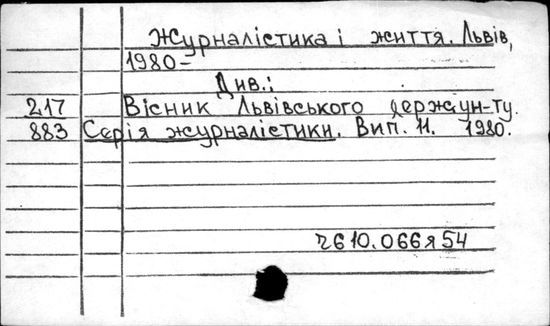 Журналістика і життя. Львів,
1980-
Див.:
217 Вісник Львівського держ.ун-ту.
883 Серія журналістики. Вип. 11. 1980.
ч610.066я54